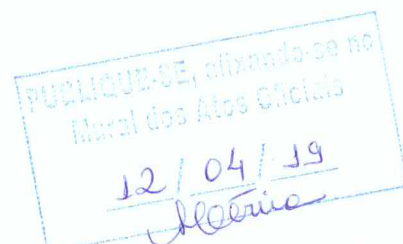 PUBLIQUE-SE, afixando-se no
Mural dos Atos Oficiais
12/04/19